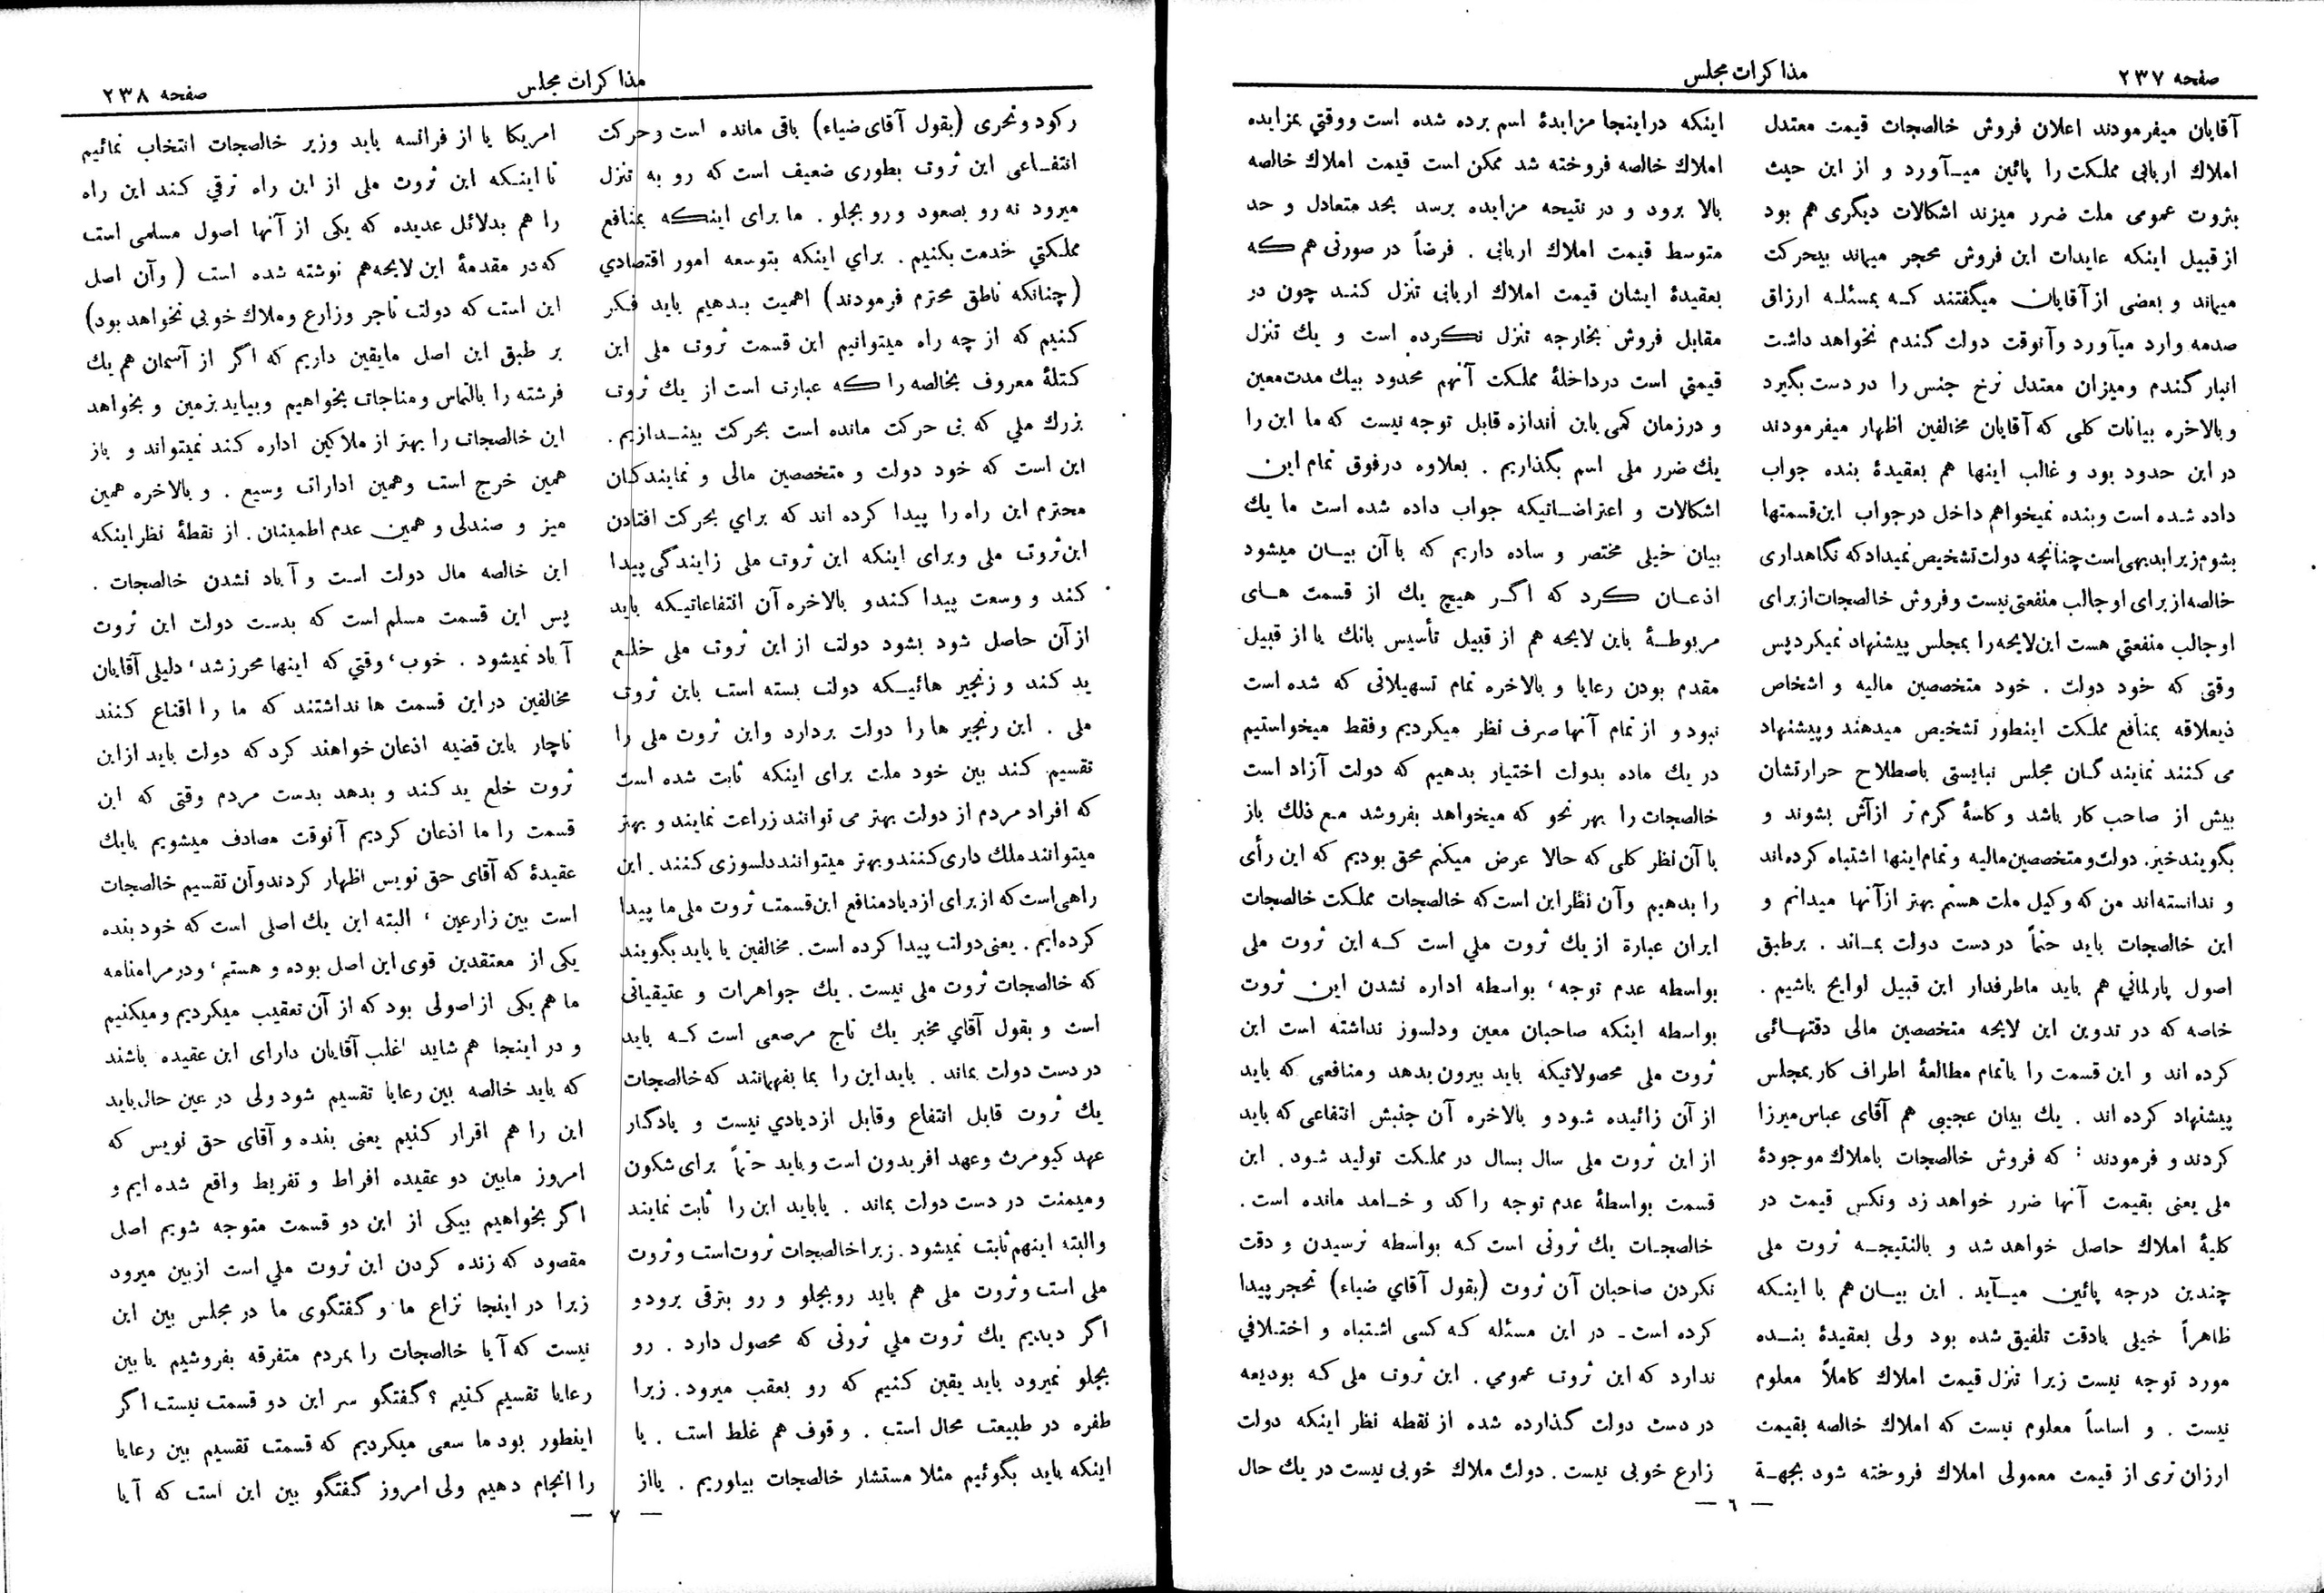 صفحه ۲۳۷
مذاکرات مجلس
آقایان میفرمودند اعلان فروش خالصجات قیمت معتدل
املاك اربابی مملکت را پائین میـآورد و از این حیث
بثروت عمومی ملت ضرر میزند اشکالات دیگری هم بود
از قبیل اینکه عایدات این فروش محجر میماند بیحرکت
میماند و بعضی از آقایان میگفتند که بمسئله ارزاق
صدمه وارد میآورد وآنوقت دولت گندم نخواهد داشت
انبار گندم ومیزان معتدل نرخ جنس را در دست بگیرد
وبالاخره بیانات کلی که آقایان مخالفین اظهار میفرمودند
در این حدود بود و غالب اینها هم بعقیدهٔ بنده جواب
داده شده است وبنده نمیخواهم داخل در جواب این قسمتها
بشوم زیرا بدیهی است چنانچه دولت تشخیص نمیداد که نگاهداری
خالصه از برای او جالب منفعتی نیست و فروش خالصجات از برای
او جالب منفعتي هست این لایحه را بمجلس پیشنهاد نمیکرد پس
وقتی که خود دولت . خود متخصصین مالیه و اشخاص
ذیعلاقه بمنافع مملکت اینطور تشخیص میدهند وپیشنهاد
می کنند نمایند گـان مجلس نبایستی باصطلاح حرارتشان
بیش از صاحب کار باشد و کاسهٔ گرم تر از آش بشوند و
بگویند خیر. دولت و متخصصین مالیه وتمام اینها اشتباه کرده اند
و ندانسته اند من که وکیل ملت هستم بهتر از آنها میدانم و
این خالصجات باید حتماً در دست دولت بمـاند . برطبق
اصول پارلماني هم باید ماطرفدار این قبیل لوایح باشیم .
خاصه که در تدوین این لایحه متخصصین مالی دقتهـائی
کرده اند و این قسمت را باتمام مطالعهٔ اطراف کار بمجلس
پیشنهاد کرده اند . یك بیان عجیبی هم آقای عباس میرزا
کردند و فرمودند : که فروش خالصجات باملاك موجودهٔ
ملی یعنی بقیمت آنها ضرر خواهد زد ونکس قیمت در
کلیهٔ املاك حاصل خواهد شد و بالنتیجـه ثروت ملی
چندین درجه پائین میـآید . این بیـان هم با اینـکه
ظاهراً خیلی بادقت تلفیق شده بود ولی بعقیدهٔ بنـده
مورد توجه نیست زیرا تنزل قیمت املاك کاملاً معلوم
نیست . و اساساً معلوم نیست که املاك خالصه بقیمت
ارزان تری از قیمت معمولی املاك فروخته شود بجهـة
اینکه در اینجا مزایدهٔ اسم برده شده است ووقتي بمزایده
املاك خالصه فروخته شد ممکن است قیمت املاك خالصه
بالا برود و در نتیحه مزایده برسد بحد متعادل و حد
متوسط قیمت املاك اربابی . فرضاً در صورتی هم که
بعقیدهٔ ایشان قیمت املاك اربابی تنزل کنـد چون در
مقابل فروش بخارجه تنزل نکرده است و یك تنزل
قیمتي است در داخلهٔ مملکت آنهم محدود بیك مدت معین
و در زمان کمی باین اندازه قابل توجه نیست که ما این را
یك ضرر ملی اسم بگذاریم . بعلاوه در فوق تمام این
اشکالات و اعتراضـاتیکه جواب داده شده است ما یك
بیان خیلی مختصر و ساده داریم که با آن بیـان میشود
اذعـان کرد که اگـر هیچ یك از قسمت هـای
مربوطـهٔ باین لایحه هم از قبیل تأسیس بانك یا از قبیل
مقدم بودن رعایا و بالاخره تمام تسهیلاتی که شده است
نبود و از تمام آنها صرف نظر میکردیم وفقط میخواستیم
در یك ماده بدولت اختیار بدهیم که دولت آزاد است
خالصجات را بهر نحو که میخواهد بفروشد مـع ذلك باز
با آن نظر کلی که حالا عرض میکنم محق بودیم که این رأی
را بدهیم وآن نظر این است که خالصجات مملکت خالصجات
ایران عبارة از یك ثروت ملي است کـه این ثروت ملی
بواسطه عدم توجه، بواسطه اداره نشدن این ثروت
بواسطه اینکه صاحبان معین ودلسوز نداشته است این
ثروت ملی محصولاتیکه باید بیرون بدهد ومنافعی که باید
از آن زائیده شود و بالاخره آن جنبش انتفاعی که باید
از این ثروت ملی سال بسال در مملکت تولید شود . این
قسمت بواسطهٔ عدم توجه راکد و خـامد مانده است .
خالصجـات یك ثروتی است کـه بواسطه نرسیدن و دقت
نکردن صاحبان آن ثروت (بقول آقاي ضیاء) تحجر پیدا
کرده است ـ در این مسئله که کسی اشتباه و اختلافي
ندارد که این ثروت عمومي . این ثروت ملی کـه بودیعه
در دست دولت گذارده شده از نقطه نظر اینکه دولت
زارع خوبی نیست . دولت ملاك خوبی نیست در یك حال
— ٦ —
مذاکرات مجلس
صفحه ۲۳۸
رکود وتحری (بقول آقای ضیاء) باقی مانده است وحرکت
انتفـاعی این ثروت بطوری ضعیف است که رو به تنزل
میرود نه رو بصعود و رو بجلو . ما برای اینـکه بمنافع
مملکتي خدمت بکنیم . براي اینکه بتوسعه امور اقتصادي
(چنانکه ناطق محترم فرمودند) اهمیت بـدهیم باید فکر
کنیم که از چه راه میتوانیم این قسمت ثروت ملی این
کتلهٔ معروف بخالصه را که عبارت است از یك ثروت
بزرك ملي که بی حرکت مانده است بحرکت بینـدازیم .
این است که خود دولت و متخصصین مالی و نمایندگان
محترم این راه را پیدا کرده اند که براي بحرکت افتادن
این ثروت ملی وبرای اینکه این ثروت ملی زایندگی پیدا
کند و وسعت پیدا کندو بالاخره آن انتفاعاتیـکه باید
از آن حاصل شود بشود دولت از این ثروت ملی خلـع
ید کند و زنجیر هائیـکه دولت بسته است باین ثروت
ملی . این زنجیر ها را دولت بردارد واین ثروت ملی را
تقسیم کند بین خود ملت برای اینکه ثابت شده است
که افراد مردم از دولت بهتر می توانند زراعت نمایند و بهتر
میتوانند ملك داری کنند و بهتر میتوانند دلسوزی کنند . این
راهی است که از برای ازدیاد منافع این قسمت ثروت ملی ما پیدا
کرده ایم . یعنی دولت پیدا کرده است. مخالفین یا باید بگویند
که خالصجات ثروت ملی نیست . یك جواهرات و عتیقیاتی
است و بقول آقاي مخبر یك تاج مرصعی است کـه باید
در دست دولت بماند . باید این را بما بفهمانند که خالصجات
یك ثروت قابل انتفاع وقابل ازدیادي نیست و یادگار
عهد کیومرث وعهد افریدون است و باید حتماً برای شکون
ومیمنت در دست دولت بماند . یا باید این را ثابت نمایند
والبته اینهم ثابت نمیشود. زیرا خالصجات ثروت است و ثروت
ملی است وثروت ملی هم باید رو بجلو و رو بترقی برود و
اگر دیدیم یك ثروت ملي ثروتی که محصول دارد . رو
بجلو نمیرود باید یقین کنیم که رو بعقب میرود. زیرا
طفره در طبیعت محال است . وقوف هم غلط است . یا
اینکه باید بگوئیم مثلا مستشار خالصجات بیاوریم . یا از
امریکا یا از فرانسه باید وزیر خالصجات انتخاب نمائیم
تا اینـکه این ثروت ملی از این راه ترقي کند این راه
را هم بدلائل عدیده که یکی از آنها اصول مسلمی است
که در مقدمهٔ این لایحه هم نوشته شده است ( وآن اصل
این است که دولت تاجر وزارع وملاك خوبی نخواهد بود)
بر طبق این اصل مایقین داریم که اگر از آسمان هم یك
فرشته را بالتماس ومناجات بخواهیم وبیاید بزمین و بخواهد
این خالصجات را بهتر از ملاکین اداره کند نمیتواند و باز
همین خرج است وهمین ادارات وسیع . و بالاخره همین
میز و صندلی و همین عدم اطمینان . از نقطهٔ نظر اینکه
این خالصه مال دولت است و آباد نشدن خالصجات .
پس این قسمت مسلم است که بدست دولت این ثروت
آباد نمیشود . خوب، وقتي که اینها محرز شد، دلیلی آقایان
مخالفین در این قسمت ها نداشتند که ما را اقناع کنند
ناچار باین قضیه اذعان خواهند کرد که دولت باید از این
ثروت خلع ید کند و بدهد بدست مردم وقتی که این
قسمت را ما اذعان کردیم آنوقت مصادف میشویم بایك
عقیدهٔ که آقای حق نویس اظهار کردند وآن تقسیم خالصجات
است بین زارعین ، البته این یك اصلی است که خود بنده
یکی از معتقدین قوی این اصل بوده و هستم، ودر مرامنامه
ما هم یکی از اصولی بود که از آن تعقیب میکردیم ومیکنیم
و در اینجا هم شاید اغلب آقایان دارای این عقیده باشند
که باید خالصه بین رعایا تقسیم شود ولی در عین حال باید
این را هم اقرار کنیم یعنی بنده و آقای حق نویس که
امروز مابین دو عقیده افراط و تفریط واقع شده ایم و
اگر بخواهیم بیکی از این دو قسمت متوجه شویم اصل
مقصود که زنده کردن این ثروت ملي است از بین میرود
زیرا در اینجا نزاع ما و گفتگوی ما در مجلس بین این
نیست که آیا خالصجات را بمردم متفرقه بفروشیم یا بین
رعایا تقسیم کنیم ؟ گفتگو سر این دو قسمت نیست اگر
اینطور بود ما سعی میکردیم که قسمت تقسیم بین رعایا
را انجام دهیم ولی امروز گفتگو بین این است که آیا
— ۷ —